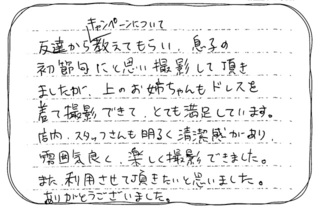 キャンペーンについて
友達から教えてもらい、息子の
初節句にと思い撮影して頂き
ましたが、上のお姉ちゃんもドレスを
着て撮影できて、とても満足しています。
店内、スタッフさんも明るく清潔感があり、
雰囲気良く、楽しく撮影できました。
また利用させて頂きたいと思いました。
ありがとうございました。